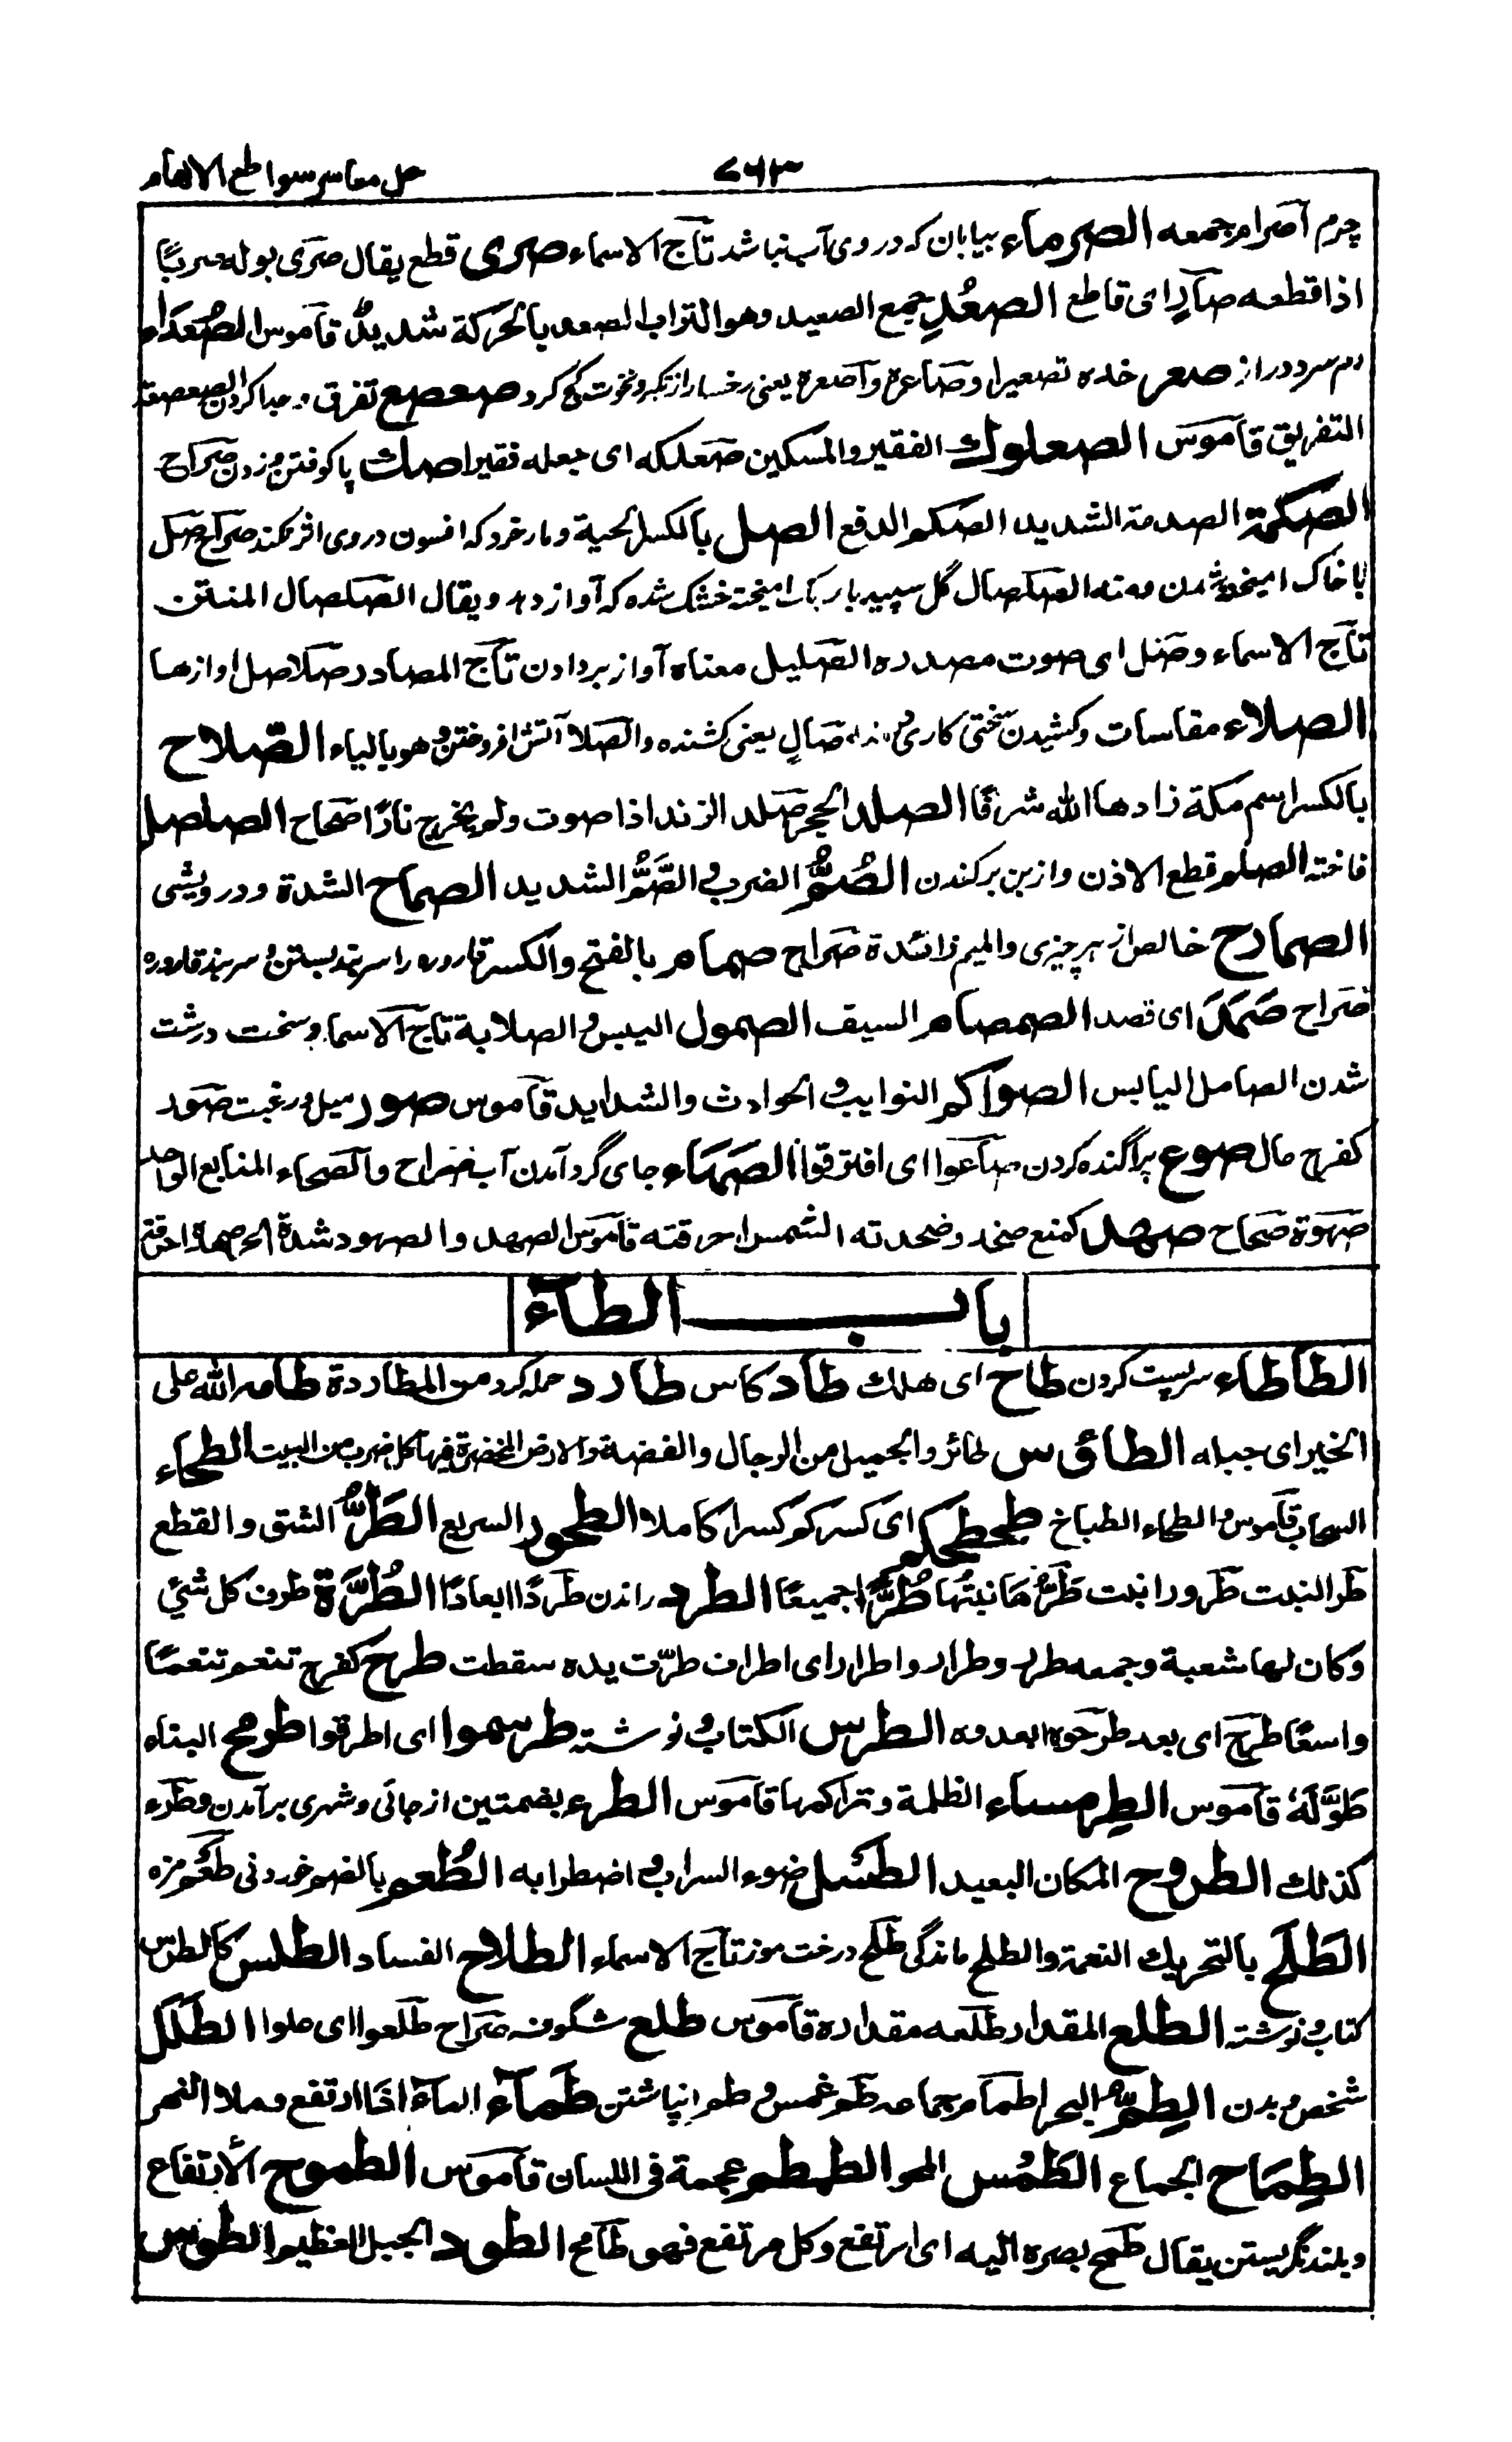 ۷۶۳ حل معاسر سواطع الالهام
چرم آصرام جمعه الصرماء بیابان که در وی آب نباشد تاج الاسماء صری قطع یقال صری بوله صریًا
اذا قطعه صارٍ ای قاطع الصعُد جمع الصعید وهو التراب الصعد بالحرکة شدید قاموس الصُعَداء
دم سرد دراز صعر خده تصعیرا وصاعره وآصعره یعنی رخسار از تکبر ونخوت کج کرد صعصع تفرق و جدا کردن الصعصعة
التفریق قاموس الصعلوک الفقیر والمسکین صعلکه ای جعله فقیرا صک پا کوفتن و زدن صراح
الصکمة الصدمة الشدید الصکم الدفع الصل بالکسر الحیة ومار خرد که افسون در وی اثر نکند صراح صل
با خاک امیخته شدن ومنه الصلصال گل سپید با ریگ امیخته خشک شده که آواز دهد ویقال الصلصال المنتن
تاج الاسماء وصل ای صوت مصدره الصلیل معناه آواز بردادن تاج المصادر صلاصل اوازها
الصلاء مقاسات وکشیدن سختی کاری صالٍ یعنی کشنده والصلا آتش افروختن وهو بالیاء الصّلاح
بالکسر اسم مکة زادها الله شرفًا الصلد الحجر صلد الزند اذا صوت ولم یخرج نارًا صحاح الصلصل
فاخته الصلم قطع الاذن واز بن برکندن الصُمُّ الضرب و الصَّمُّ الشدید الصماح الشدة ودرویشی
الصمادح خالص از هر چیزی والمیم زائدة صراح صمام بالفتح والکسر قاروره را سر بند بستن و سربند قاروره
صراح صَمَدَ ای قصد الصمصام السیف الصمول الیبس و الصلابة تاج الاسما وسخت درشت
شدن الصامل الیابس الصواکم النوایب و الحوادث والشداید قاموس صور میل و رغبت صور
کفرح مال صوع پراگنده کردن صاعوا ای افترقوا الصَهاء جای گرد آمدن آب صراح والصهاء المنابع الواحد
صهوة صحاح صهد کمنع صخد وصخدته الشمس احرقته قاموس الصهد والصهود شدة الحر صهده احرقته
باب الطاء
الطأطاء سر پست کردن طاح ای هلک طاد کاس طارد حمله کرد من المطاردة طام الله علی
الخیر ای جبله الطاؤس طائر والجمیل من الرجال والفضة والارض المخضرة فیها کل ضرب من النبت الطحاء
السحاب قاموس و الطحاء الطباخ طحطحکم ای کسرکم کسرا کاملا الطحور السریع الطَرُّ الشق والقطع
طر النبت طرورا نبت طَرُّهَا نبتُها طُرًّا جمیعًا الطرد راندن طردًا ابعادًا الطُرَّة طرف کل شیٔ
وکان لها شعبة وجمعه طرر وطرار واطرار ای اطراف طرّت یده سقطت طرح کفرح تنعم تنعمًا
واسعًا طرح ای بعد طرحوه ابعدوه الطرس الکتاب و نوشته طرسموا ای اطرقوا طرمح البناء
طوَّلَهُ قاموس الطِرمساء الظلمة وتراکمها قاموس الطرء بضمتین از جائی و شهری برآمدن وطرء
کذلک الطروح المکان البعید الطَسل ضوء السراب و اضطرابه الطُعم بالضم خوردنی طَعم مزه
الطَلَح بالتحریک النعمة والطلح ماندگی طلح درخت موز تاج الاسماء الطلاح الفساد الطلس کالطرس
کتاب و نوشته الطلع المقدار طلعه مقداره قاموس طلع شگوفه صراح طلعوا ای علوا الطَلَل
شخص و بدن الطِمُّ البحر اطمام جماعه طم غمس و طم انپاشتن طَماءَ الماءُ اذا ارتفع وملا النهر
الطِمَاح الجماع الطَمُس المحو الطمطم عجمة فی اللسان قاموس الطموح الارتفاع
وبلند نگریستن یقال طمح بصره الیه ای ارتفع وکل مرتفع فهو طامح الطود الجبل العظیم الطوس